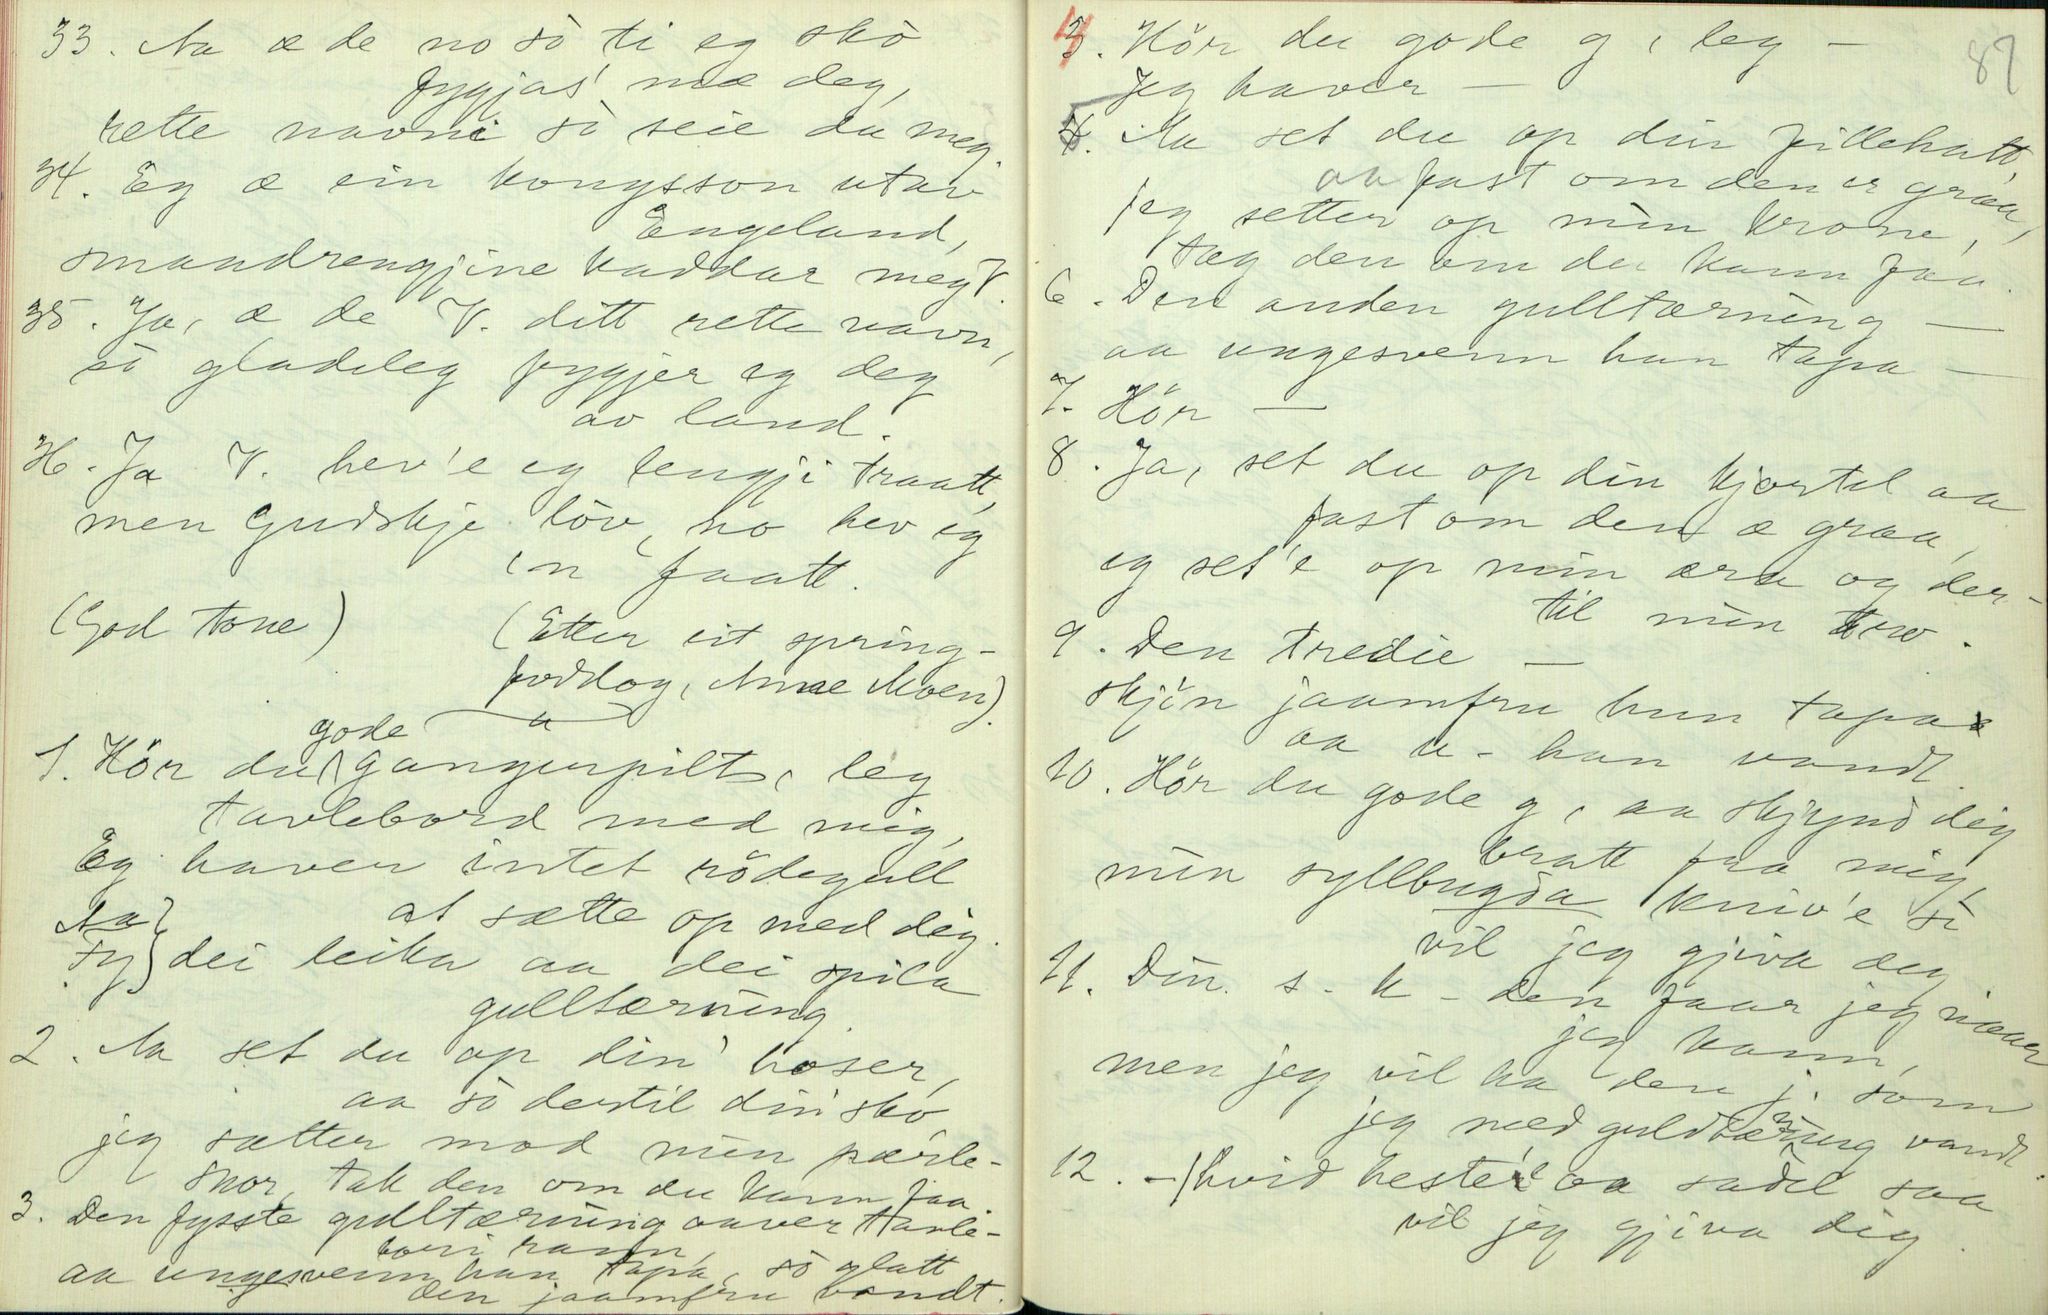 33. Aa æ de no sò, ti eg skò
fygjas' mæ deg,
rette navni sò seie du meg.
34. Eg æ ein kongsson utav
Engeland,
smaadrengjine kaddar meg V.
35. Ja, æ de V. ditt rette navn,
sò gladeleg fygjer eg deg
av land.
36. Ja V. hev'e eg lengji traatt,
men Gudskje löv, no hev eg
'n faatt.
(God tone) (Etter eit spring-
foddog, Anne Moen).
gode
1. Hör du gangerpilt, leg
tavlebord med mig,
Eg haver intet rödegull
at sætte op med dig.
Aa
Fy} dei leika aa dei spila
gulltærning.
2. Aa set du op din' hoser,
aa sò dertil din' sko,
jeg sætter mod min pærle-
snor, tak den om du kann faa.
3. Den fysste gulltærning aaver tavle-
bori rann,
aa ungesvenn han tapa, sò glatt
den jaamfru vandt.
87
4. Hör du gode g, leg —
Jeg haver —
5. Aa set du op din fillehatt,
aa fast om den er graa,
jeg setter op min krone,
tag den om du kann faa.
6. Den anden gulltærning —
aa ungesvenn han tapa —
7. Hör —
8. Ja, set du op din kjortel aa
fast om den æ graa,
eg set'e op min æra og der-
til min tro.
9. Den tredie —
skjön jaamfru hun tapa
aa u- han vandt.
10. Hör du gode g, aa skjynd dig
bratt fra mig,
min syllbugda kniv'e sò
vil jeg gjiva deg
11. Din s- k- den faar jeg naar
jeg kann,
men jeg vil ha den j. som
jeg med guldtærning vandt.
12. — hvid heste aa sadel saa
vil jeg gjiva dig.